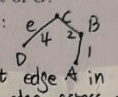 e C
B
4 2
D 1
A
t edge A in